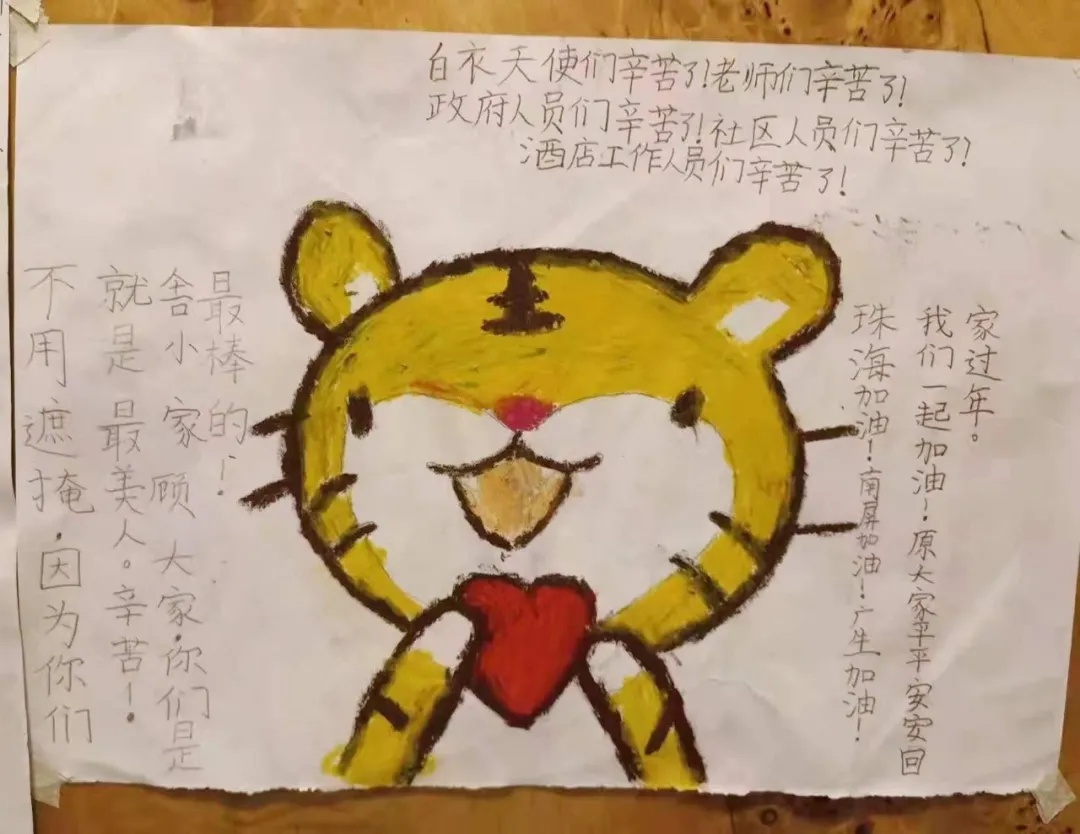 白衣天使们辛苦了!老师们辛苦了!
政府人员们辛苦了!社区人员们辛苦了!
酒店工作人员们辛苦了!
不用遮掩.因为你们
就是最美人。辛苦!
舍小家顾大家.你们是
最棒的!
珠海加油!南屏加油!广生加油!
我们一起加油!原大家平平安安回
家过年。